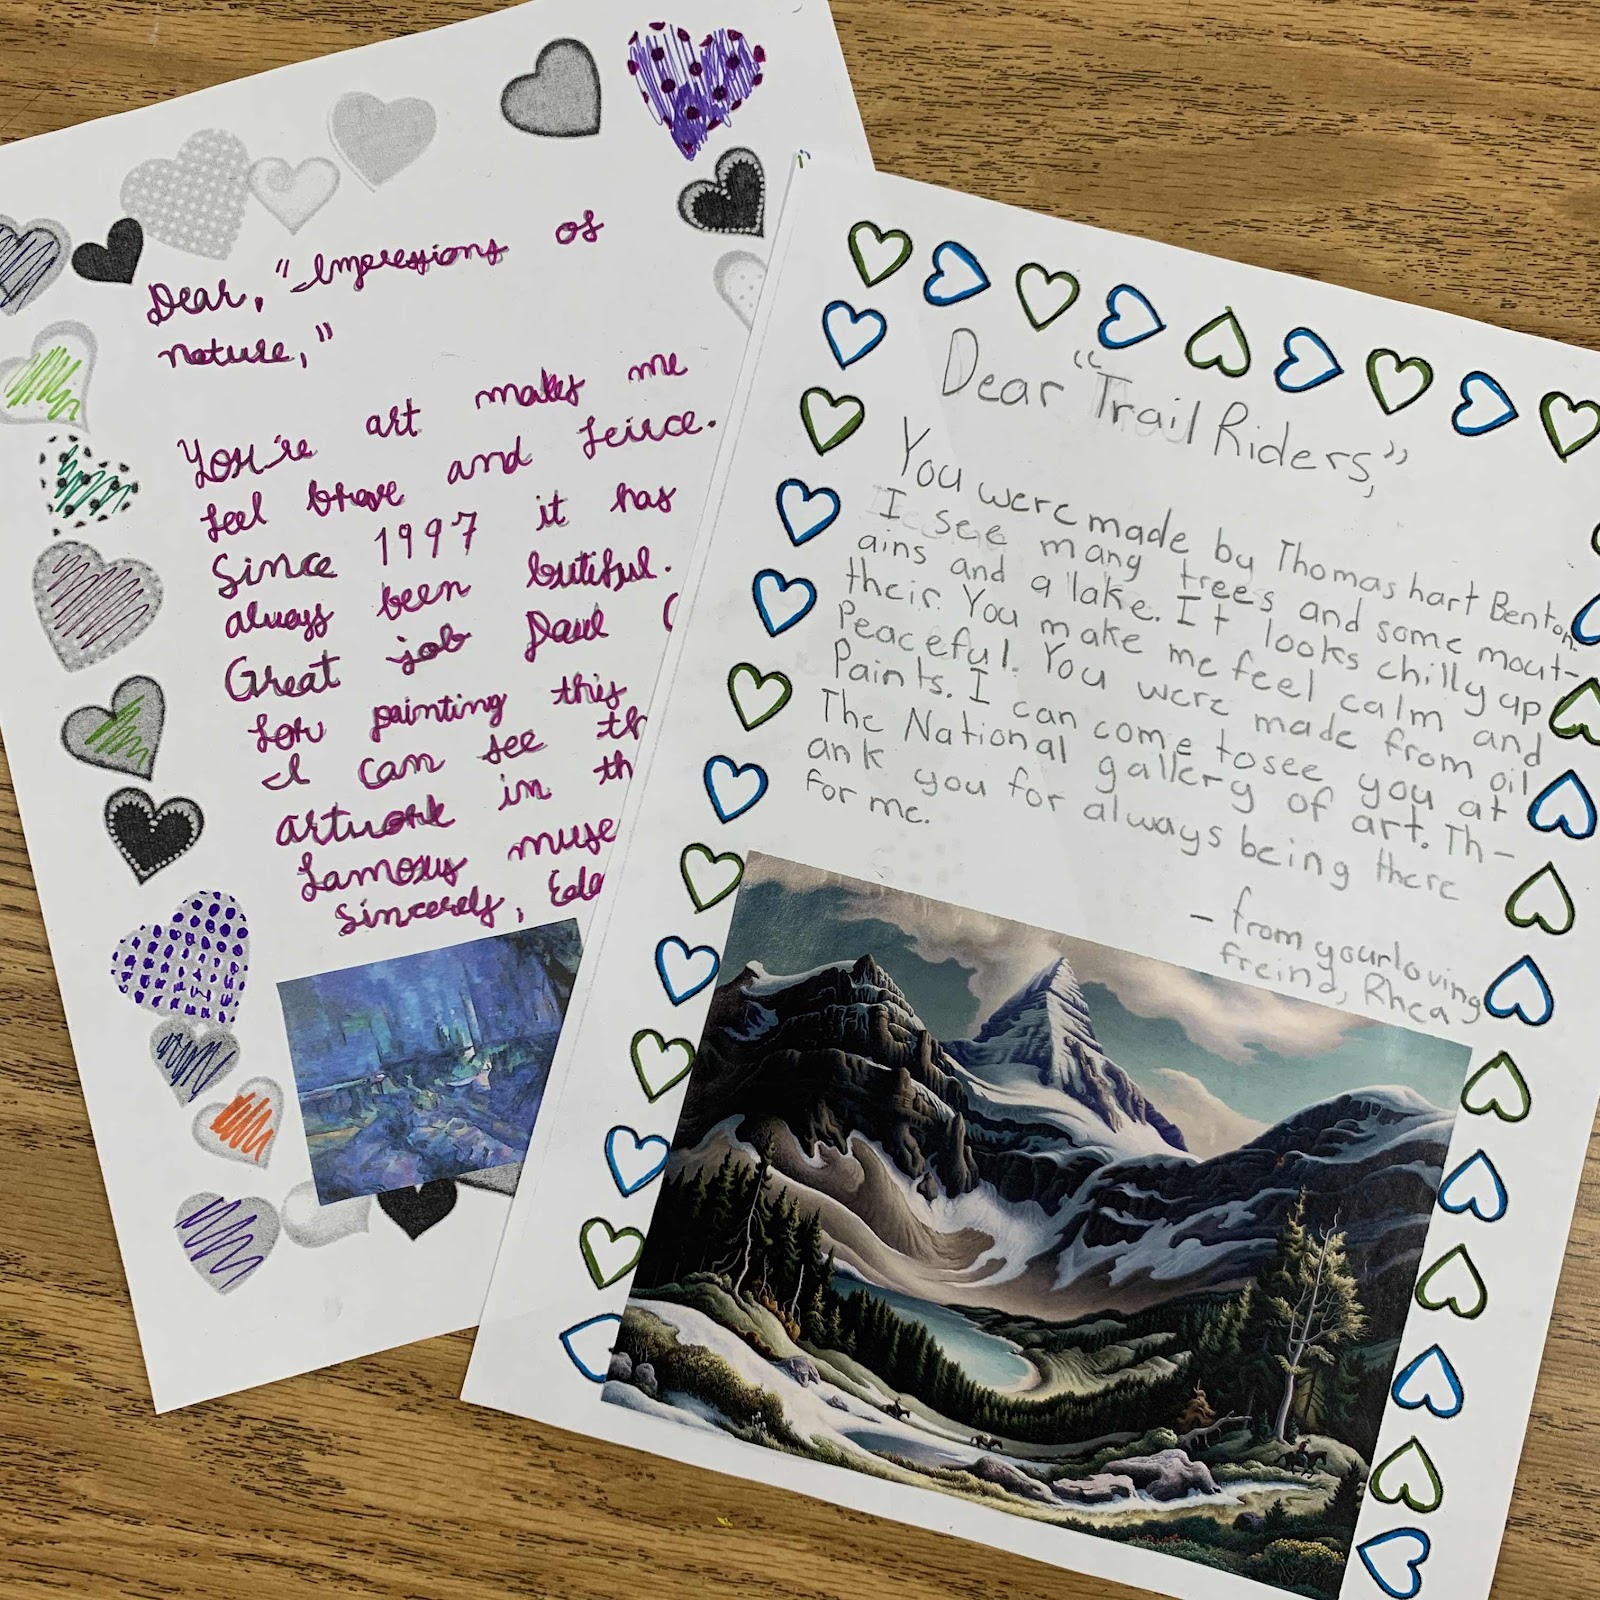 Dear, "Impressions of
nature,"
You're art makes me
feel brave and feirce.
Since 1997 it has
always been butiful.
Great job Paul
for painting this
I can see
artwork in
famous
Sincerely,
Dear "Trail Riders,"
You were made by Thomas hart Benton.
I see many trees and some mout-
ains and a lake. It looks chilly up
their. You make me feel calm and
Peaceful. You were made from oil
Paints. I can come to see you at
The National gallery of art. Th-
ank you for always being there
for me.
- from your loving
freind, Rhea